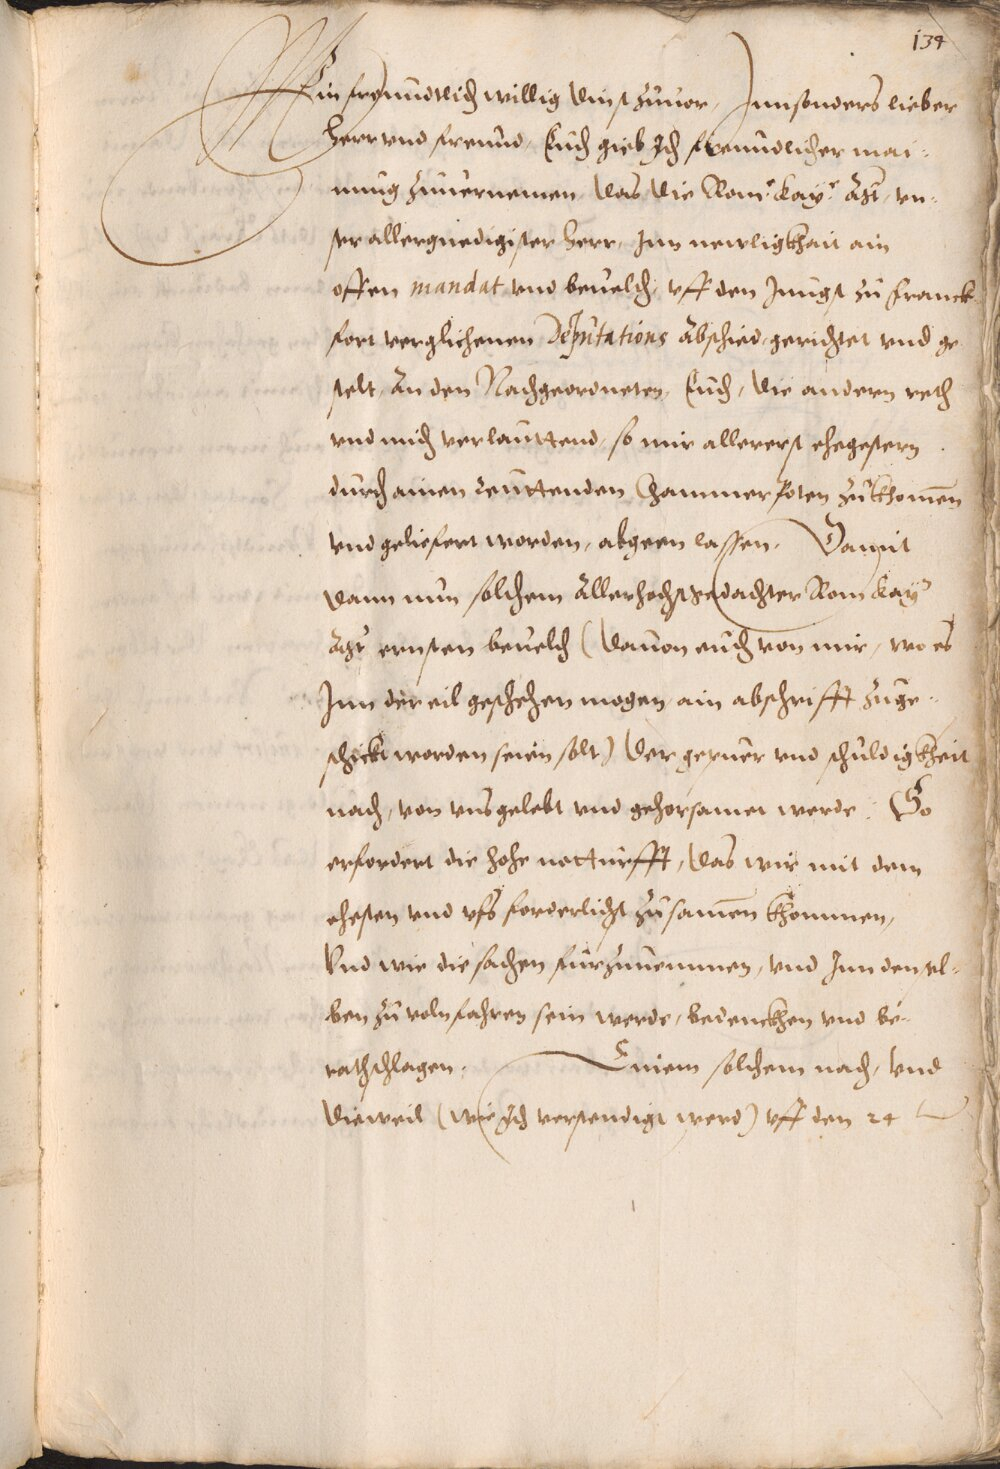 134
Mein freundtlich willig dinst zuuor, Innsonders lieber
Herr vnd freund, Euch gieb Ich freundlicher mai-
nung zuuernemen, das die Rom: Kay: Mt, vn-
ser allergnedigister Herr, Inn newligkhait ain
offen mandat vnd beuelch, vff den Jungst zu Franck-
fort verglichenen Deputations Abschied, gerichtet vnd ge-
stelt, An den Nachgeordneten, Euch, die andern reth
vnd mich verlauttend, so mir allererst ehegestern
durch ainen reuttenden Chammer Poten zukhomen
vnd geliefert worden, abgeen lassen. Damit
dann nun solchem Allerhochstgedachter Rom Kay
Mt ernsten beuelch (dauon euch von mir, wo es
Inn der eil geschehen mogen, ain abschrifft zuge-
schickt worden seien solt) der gepuer vnd schuldigkheit
nach, von vns gelebt vnd gehorsamet werde: So
erfordert die hohe notturfft, das wir mit dem
ehesten vnd vfs forderlichst zusamen khommen,
Vnd wie die sachen furzunemmen, vnd Inn densel-
ben zu volnfahren sein werde, bedenckhen vnd be-
rathschlagen. Einem solchem nach, Vnd
dieweil (wie Ich verstendigt werd) vff den 24